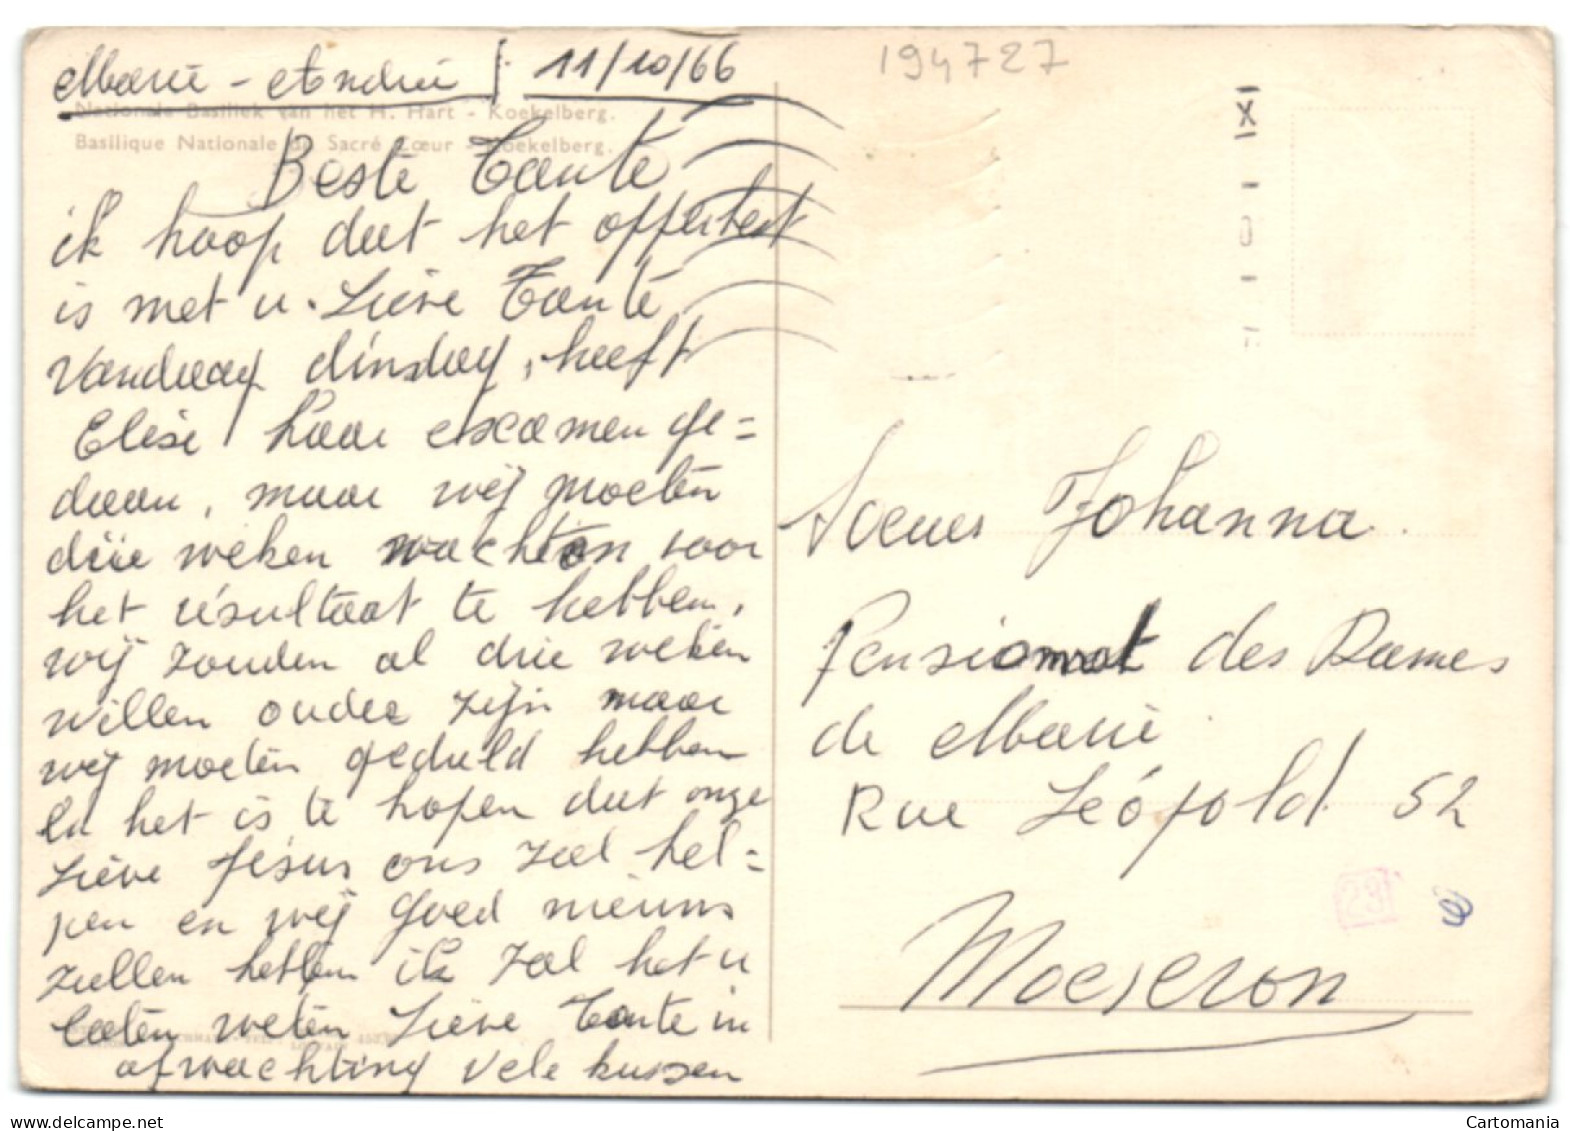 Marie - Andrée 11/10/66
Nationale Basiliek van het H. Hart - Koekelberg.
Basilique Nationale du Sacré Cœur - Koekelberg.
Beste Tante
ik hoop dat het opperbest
is met u. Liève Tante
Vandaag dinsdag, heeft
Elise haar escamen ge=
daan, maar wij moeten
drie weken wachten voor
het résultaat te hebben,
wij zouden al drie weken
willen ouder zijn maar
wij moeten geduld hebben
en het is te hopen dat onze
Liève Jésus ons zal hel=
pen en wij goed nieuws
zullen hebben ik zal het u
laten weten Liève Tante in
afwachting vele kussen
194727
X
Soeur Johanna
Pensionnat des Dames
de Marie
Rue Léópold 52
Moescron
23
Cartomania